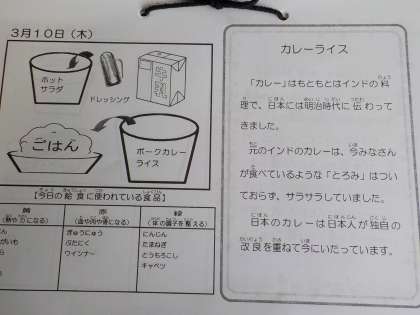 3月10日（木）
ホット
サラダ
ドレッシング
ごはん
ポークカレー
ライス
【今日の給食に使われている食品】
黄
（熱や力になる）
赤
（血や肉や骨になる）
緑
（体の調子を整える）
ぎゅうにゅう
ぶたにく
ウインナー
にんじん
たまねぎ
とうもろこし
キャベツ
カレーライス
「カレー」はもともとはインドの料
理で、日本には明治時代に伝わって
きました。
元のインドのカレーは、今みなさん
が食べているような「とろみ」はつい
ておらず、サラサラしていました。
日本のカレーは日本人が独自の
改良を重ねて今にいたっています。